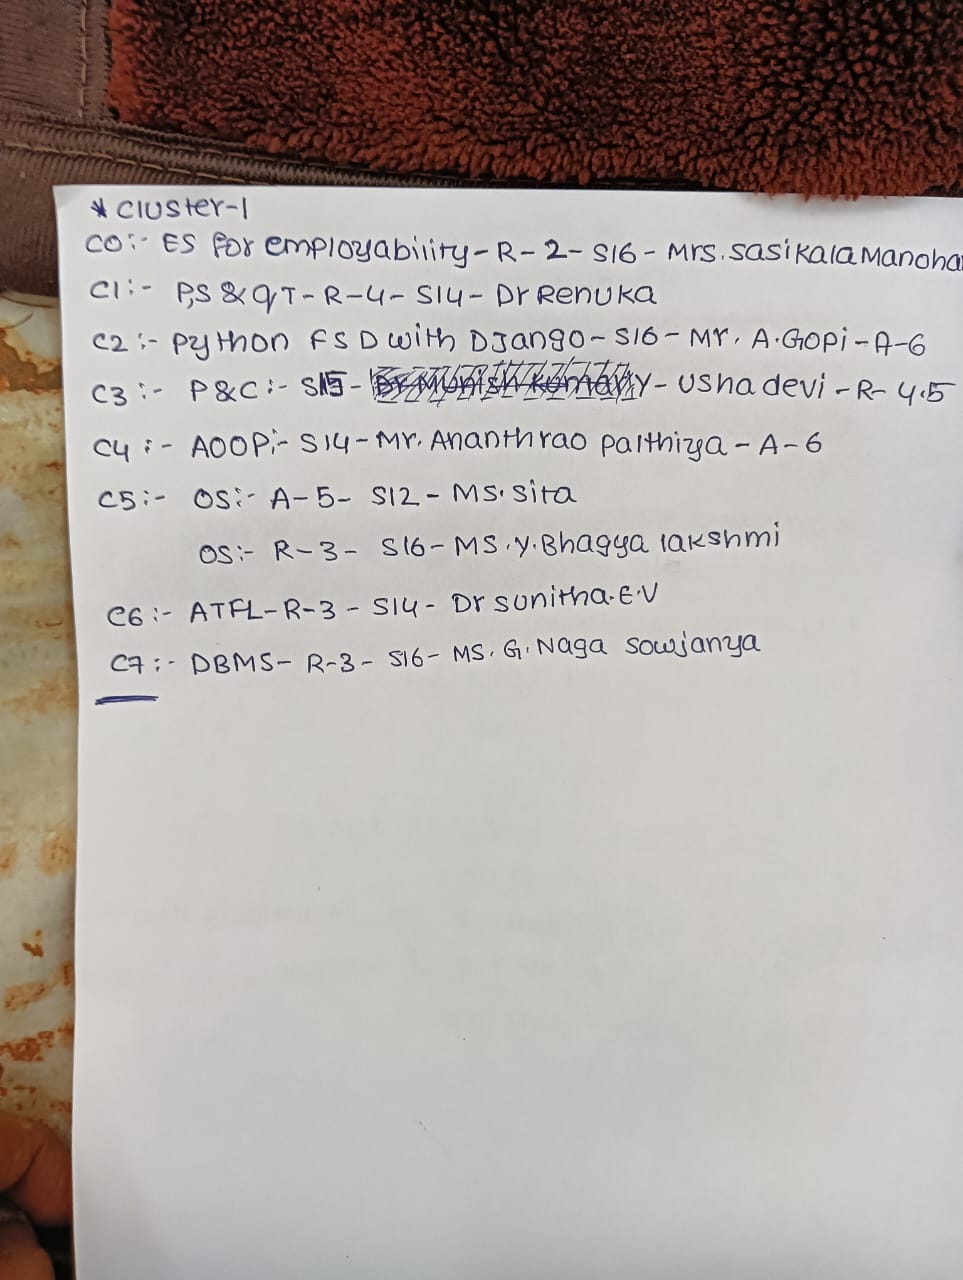 * Cluster-1
C0:- ES for employability-R-2-S16-Mrs.SasikalaManoha
C1:- P,S & QT-R-4-S14-Dr Renuka
C2:- Python FSD with DJango-S16-Mr. A.Gopi-A-6
C3:- P&C:- Y-Usha devi-R-4.5
C4:- AOOP:- S14-Mr. Ananthrao Palthiya-A-6
C5:- OS:- A-5-S12-Ms.Sita
OS:- R-3-S16-MS.Y.Bhagya lakshmi
C6:- ATFL-R-3-S14-Dr Sunitha.E.V
C7:- DBMS-R-3-S16-MS.G.Naga Sowjanya